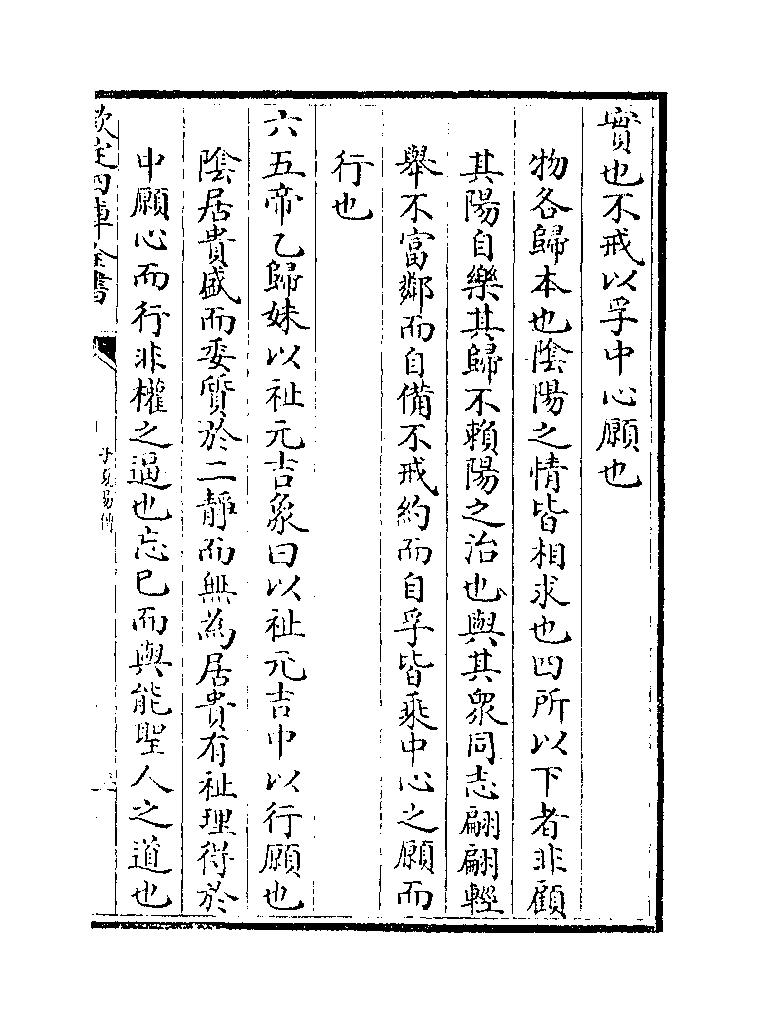 實也不戒以孚中心願也
物各歸本也陰陽之情皆相求也四所以下者非顧
其陽自樂其歸不賴陽之治也與其衆同志翩翩輕
舉不富鄰而自備不戒約而自孚皆乘中心之願而
行也
六五帝乙歸妹以祉元吉象曰以祉元吉中以行願也
陰居貴盛而委質於二靜而無為居貴有祉理得於
中願心而行非權之逼也忘已而與能聖人之道也
欽定四庫全書
子夏易傳